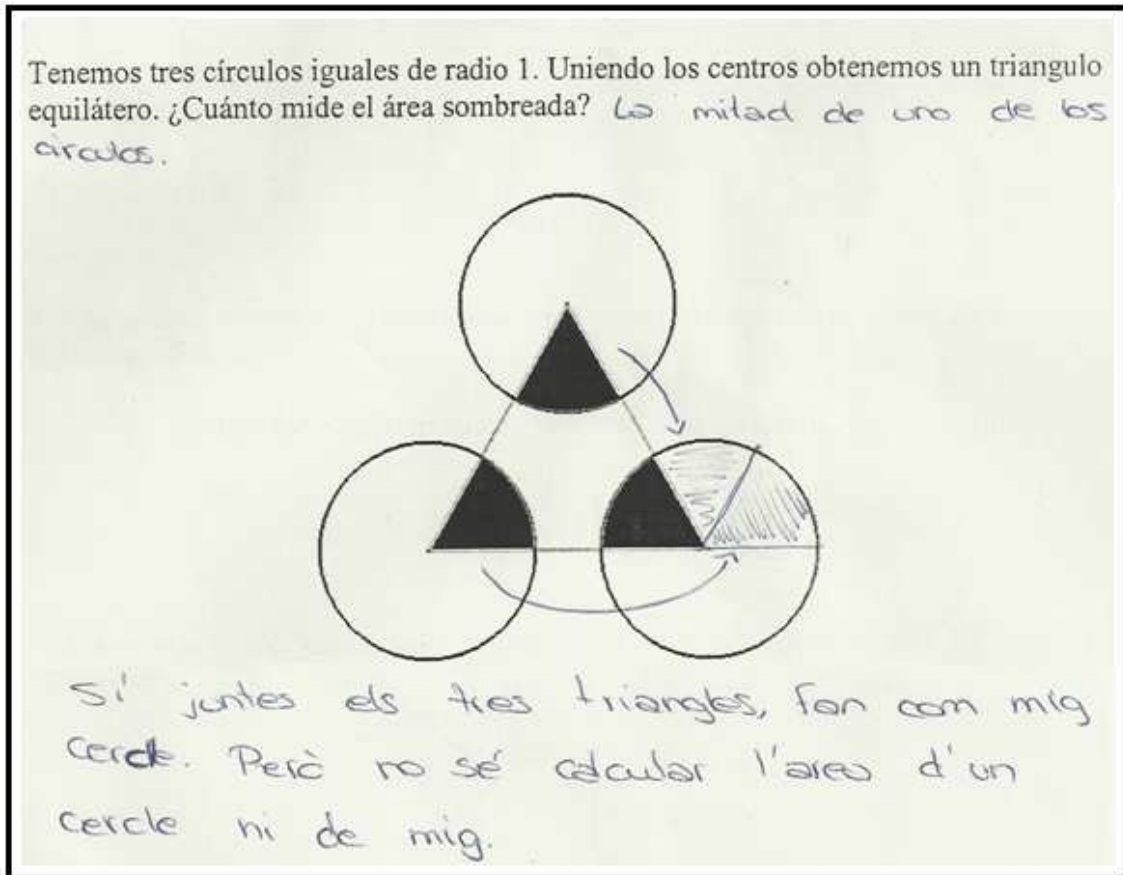 Tenemos tres círculos iguales de radio 1. Uniendo los centros obtenemos un triangulo
equilátero. ¿Cuánto mide el área sombreada? La mitad de uno de los
círculos.
Si juntes els tres triangles, fan com mig
cercle. Però no sé calcular l'area d'un
cercle ni de mig.